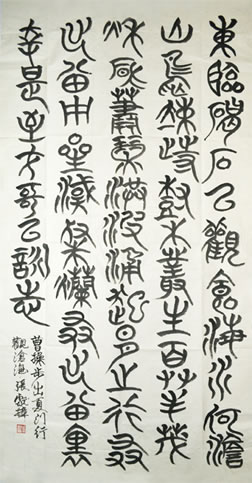 東臨碣石以觀滄海水何澹
山島竦峙樹木叢生百草豐茂
秋風蕭瑟洪波涌起日月之行若
出其中星漢燦爛若出其裏
幸甚至哉歌以詠志
曹操步出夏門行
觀滄海 張